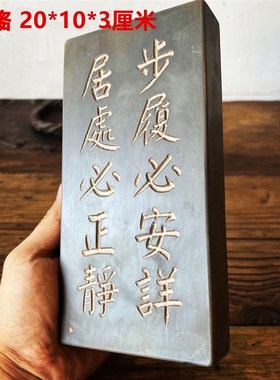 20*10*3厘米
步履必安詳
居處必正靜